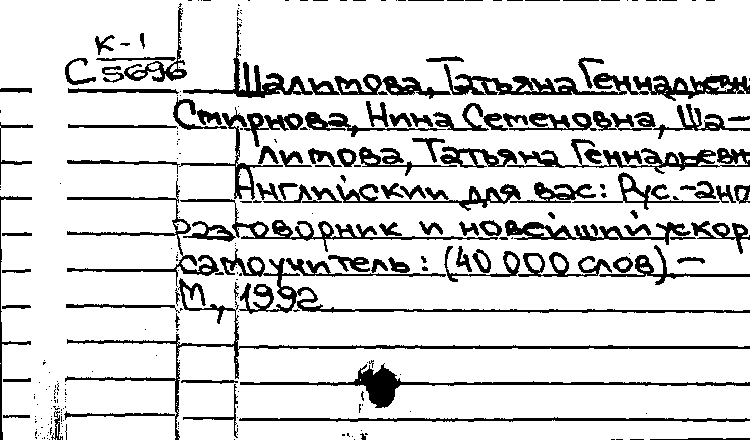 К-1
С 5696
Шалимова, Татьяна Геннадьевн
Смирнова, Нина Семеновна, Ша-
лимова, Татьяна Геннадьевн
Английский для вас: Рус.-анг
разговорник и новейший ускор
самоучитель: (40 000 слов).-
М., 1992